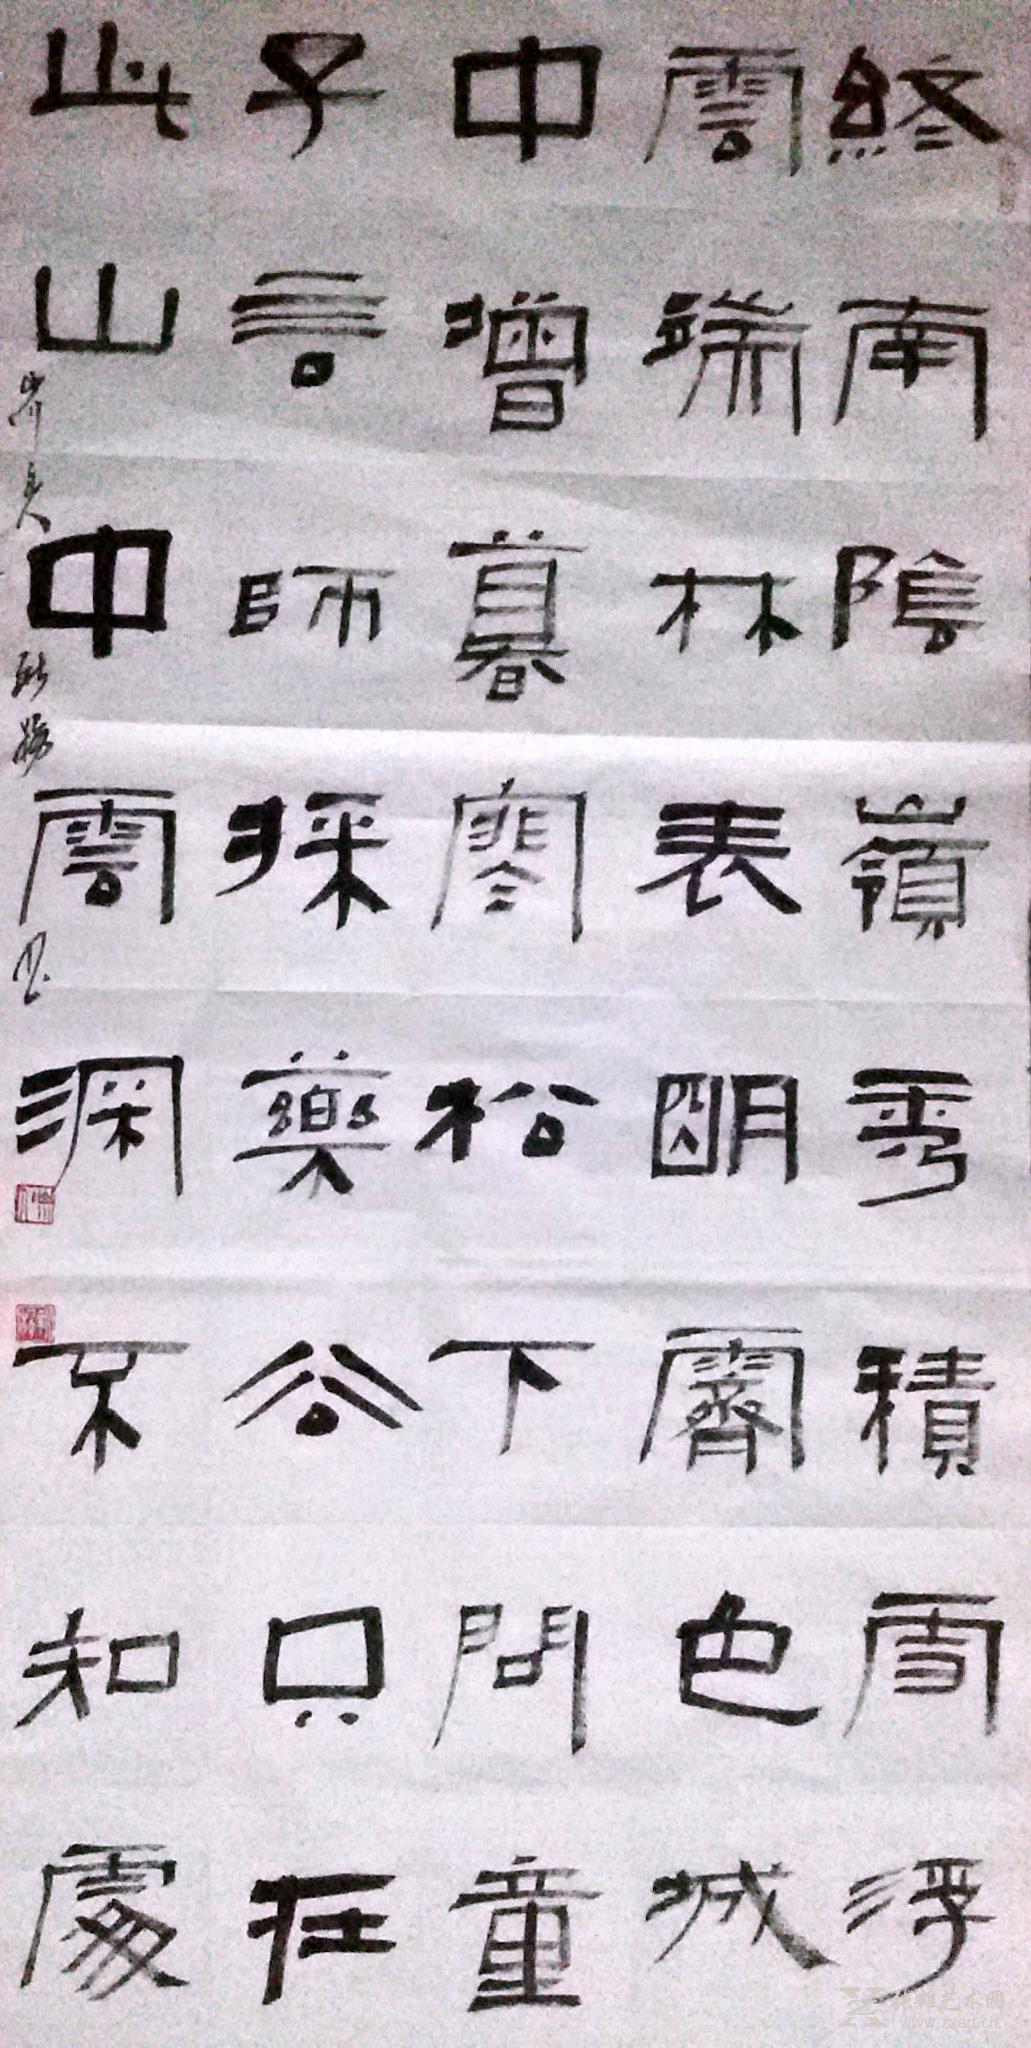 終南陰嶺秀積雪浮
雲端林表明霽色城
中增暮寒松下問童
子言師採藥公只在
此山中雲深不知處
www.zxart.cn